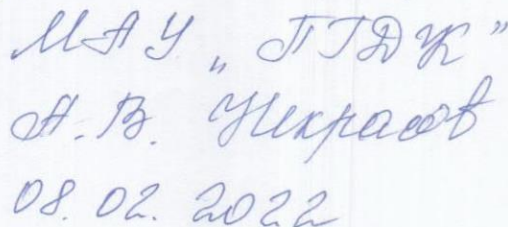 МАУ „ПГДК"
А.В. Некрасов
08.02.2022